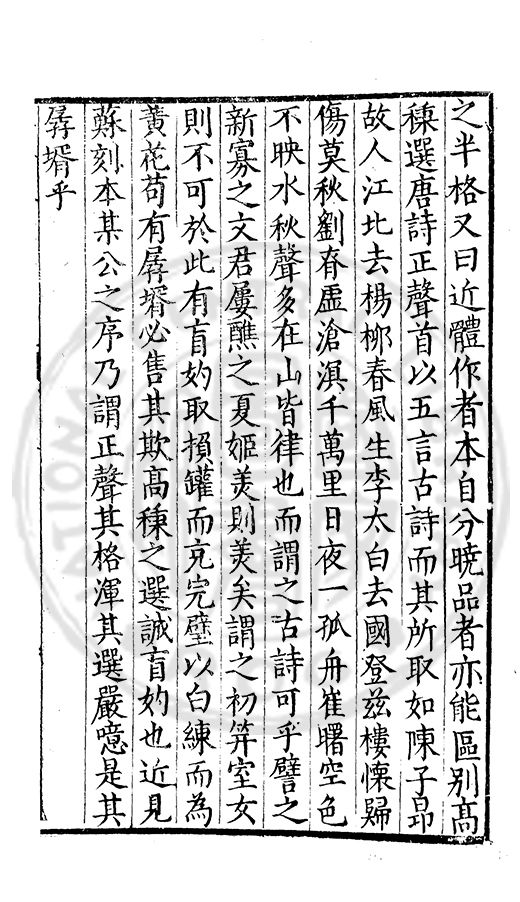 之半格又曰近體作者本自分曉品者亦能區別高
棅選唐詩正聲首以五言古詩而其所取如陳子昂
故人江北去楊柳春風生李太白去國登茲樓懷歸
傷莫秋劉脊虛滄溟千萬里日夜一孤舟崔曙空色
不映水秋聲多在山皆律也而謂之古詩可乎譬之
新寡之文君屢醮之夏姬美則美矣謂之初笄室女
則不可於此有盲妁取損罐而充完璧以白練而為
黃花苟有孱壻必售其欺高棅之選誠盲妁也近見
蘇刻本某公之序乃謂正聲其格渾其選嚴噫是其
孱壻乎